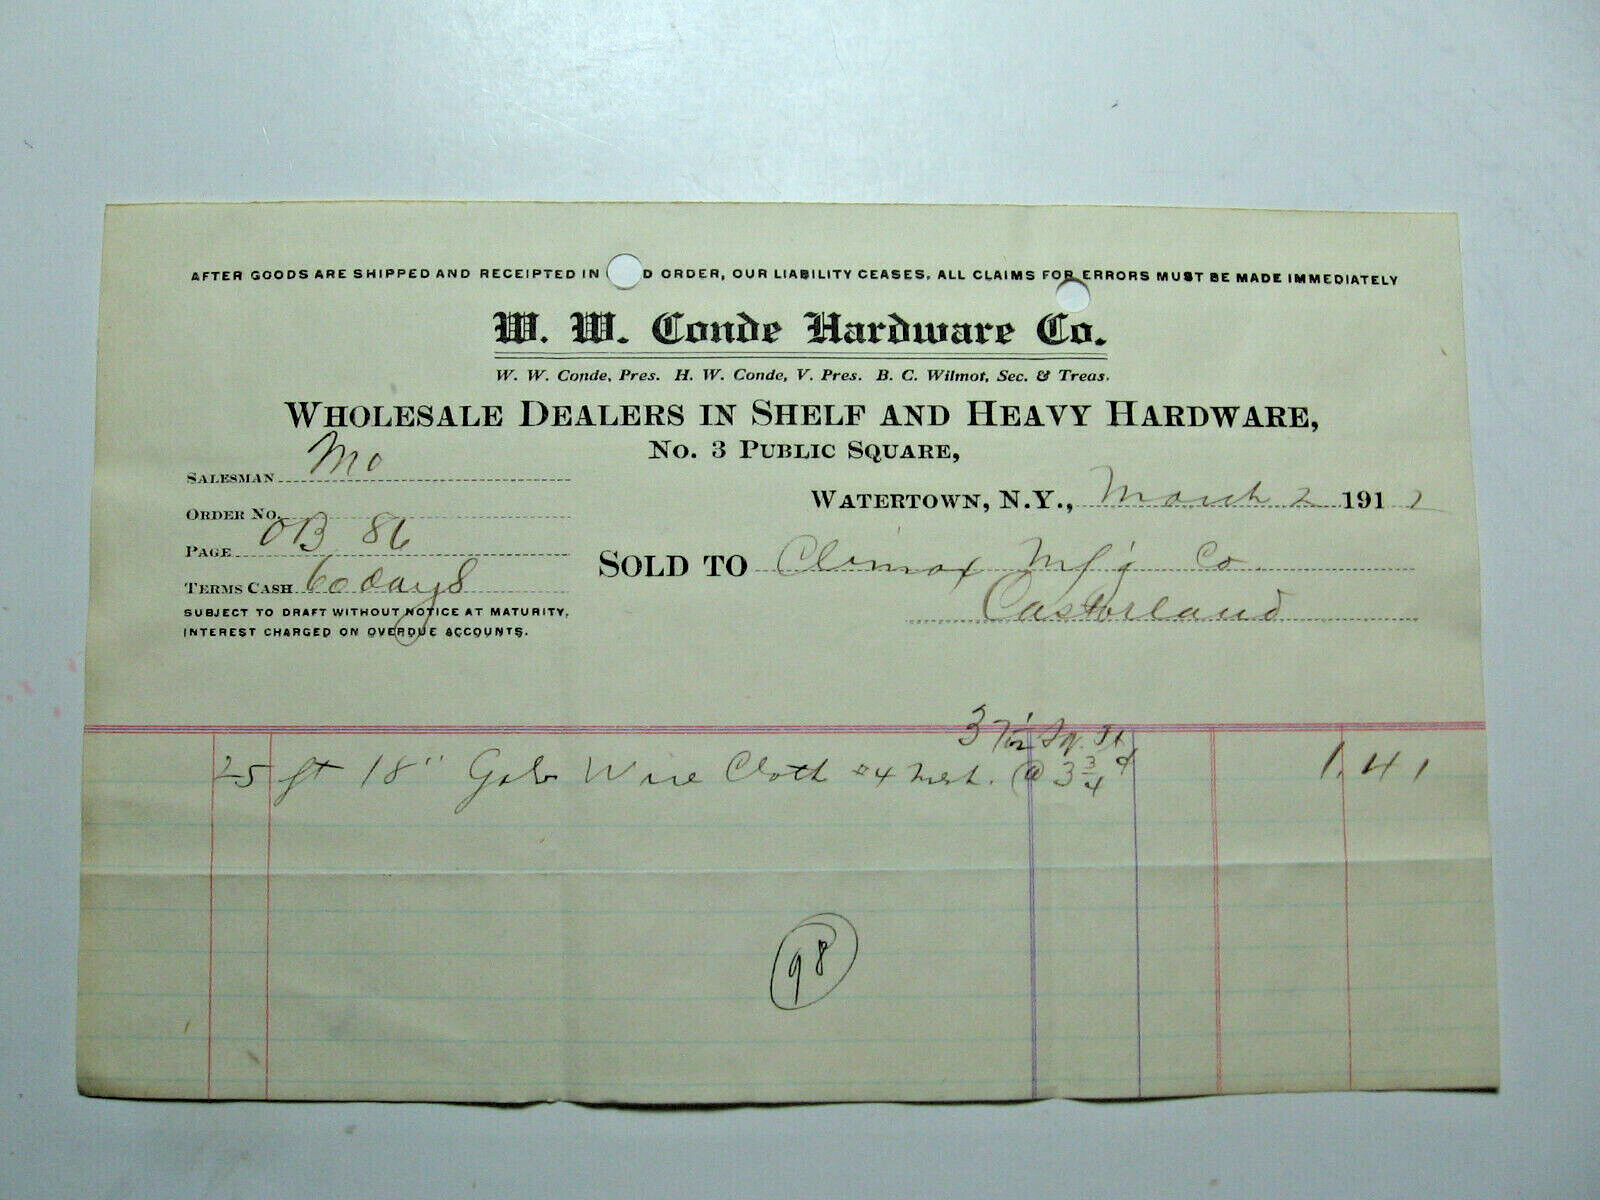 AFTER GOODS ARE SHIPPED AND RECEIPTED IN D ORDER, OUR LIABILITY CEASES. ALL CLAIMS FOR ERRORS MUST BE MADE IMMEDIATELY
W. W. Conde Hardware Co.
W. W. Conde, Pres. H. W. Conde, V. Pres. B. C. Wilmot, Sec. & Treas.
WHOLESALE DEALERS IN SHELF AND HEAVY HARDWARE,
No. 3 PUBLIC SQUARE,
SALESMAN Mo
WATERTOWN, N.Y., March 2 1912
ORDER NO.
PAGE OB 86
SOLD TO Climax Mf'g Co.
TERMS CASH 60 days
Castorland
SUBJECT TO DRAFT WITHOUT NOTICE AT MATURITY.
INTEREST CHARGED ON OVERDUE ACCOUNTS.
37 1/2 Sq. Ft
25 ft 18" Galv Wire Cloth #4 Mesh. @ 3 3/4 ¢ 1.41
98